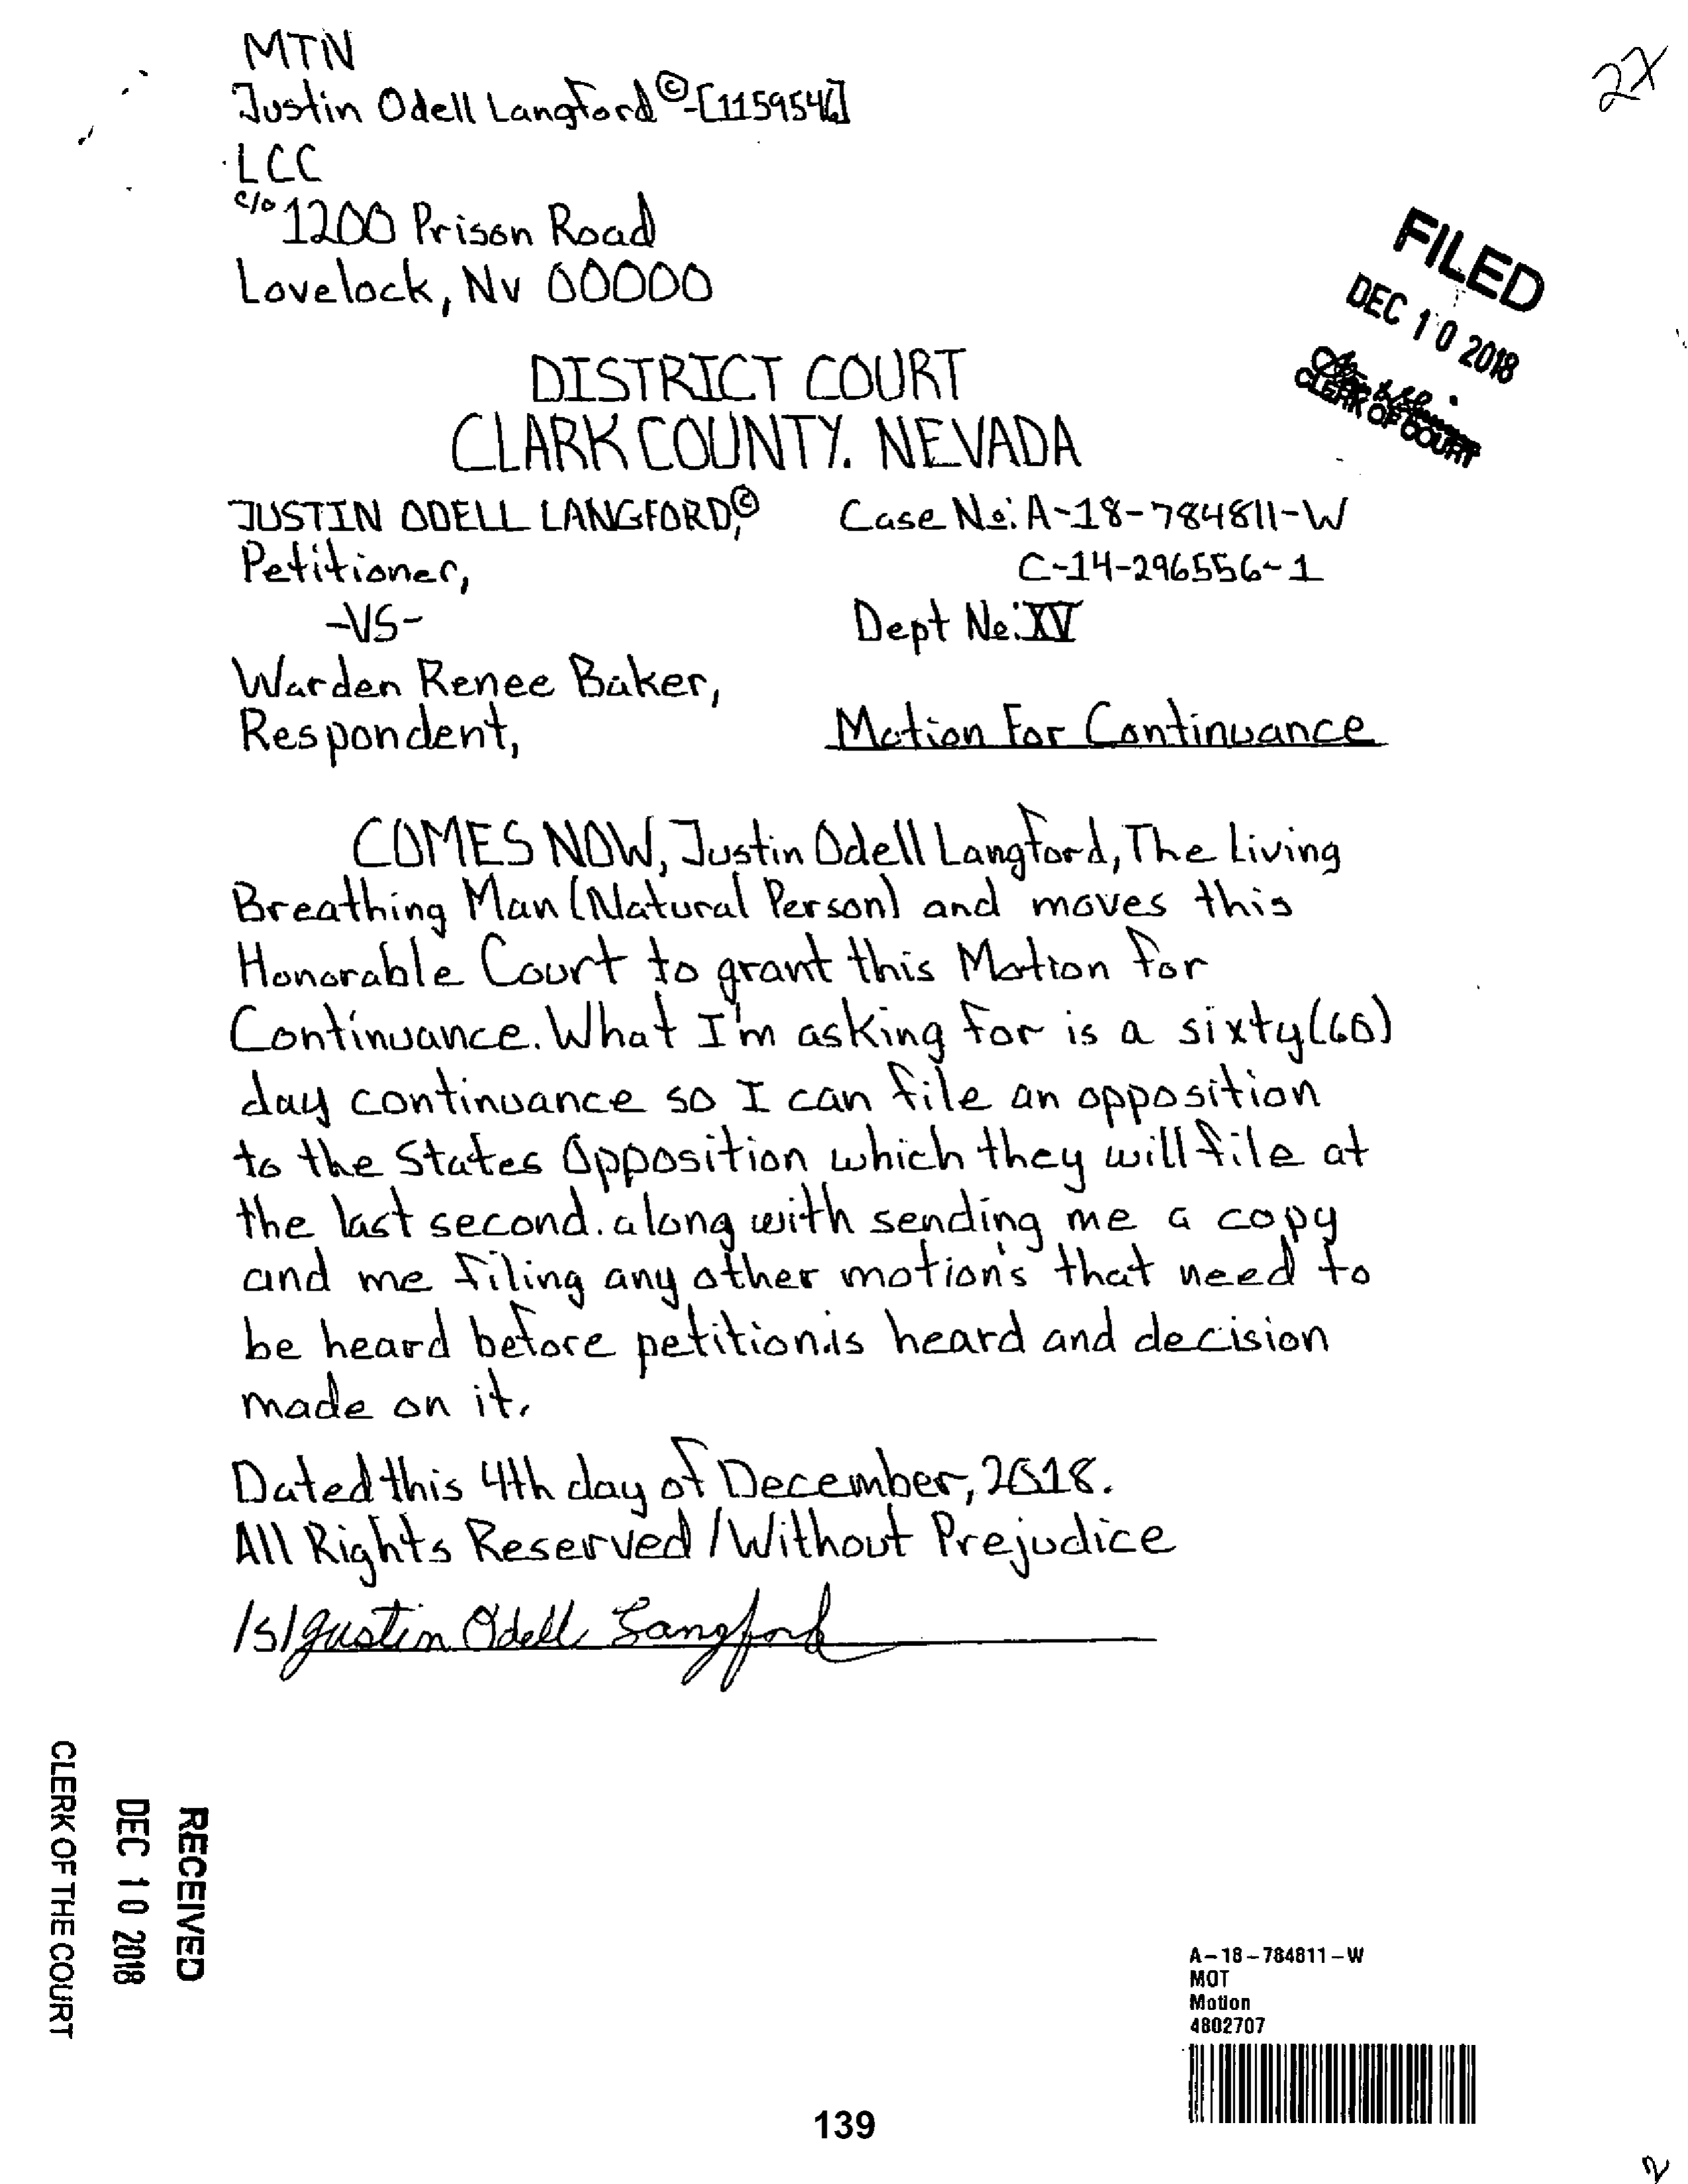 MTN
2X
Justin Odell Langford©-[1159546]
LCC
c/o 1200 Prison Road
Lovelock, Nv 00000
FILED
DEC 10 2018
CLERK OF COURT
DISTRICT COURT
CLARK COUNTY. NEVADA
JUSTIN ODELL LANGFORD,© Case No: A-18-784811-W
Petitioner, C-14-296556-1
-VS- Dept No: XV
Warden Renee Baker,
Respondent, Motion For Continuance
COMES NOW, Justin Odell Langford, The Living
Breathing Man (Natural Person) and moves this
Honorable Court to grant this Motion for
Continuance. What I'm asking for is a sixty (60)
day continuance so I can file an opposition
to the States Opposition which they will file at
the last second. along with sending me a copy
and me filing any other motions that need to
be heard before petition is heard and decision
made on it.
Dated this 4th day of December, 2018.
All Rights Reserved / Without Prejudice
/s/ Justin Odell Langford
RECEIVED
DEC 10 2018
CLERK OF THE COURT
A-18-784811-W
MOT
Motion
4802707
139
2